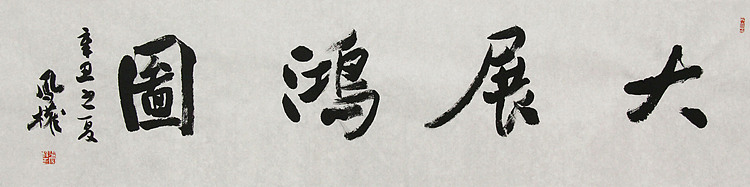 大展鴻圖
辛丑之夏